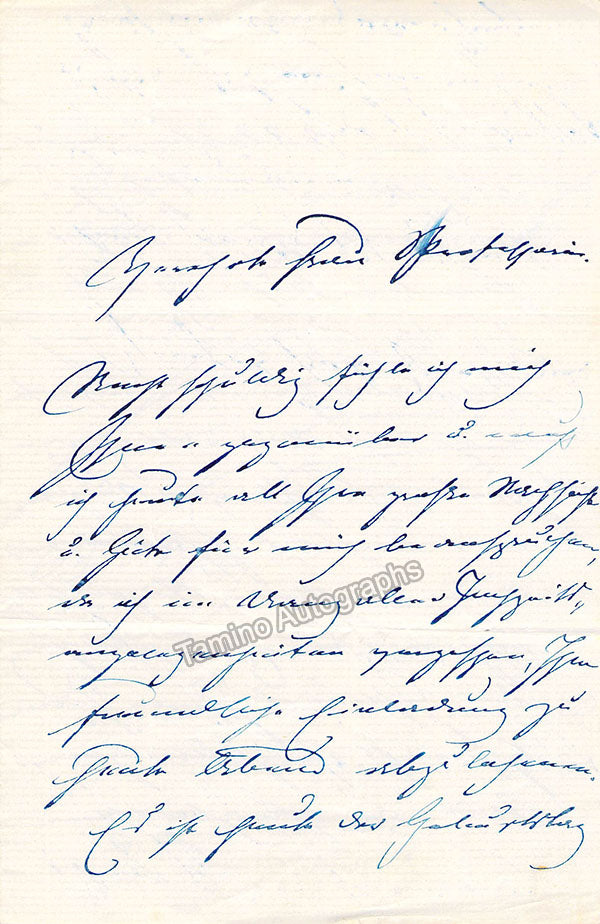 Verehrte Frau Professorin.
Recht schuldig fühle ich mich
Ihnen gegenüber u. muß
ich heute all Ihre große Nachsicht
u. Güte für mich beanspruchen,
da ich im Drang aller
angelegenheiten vergessen, Ihre
freundliche Einladung zu
heute Abend abzulehnen.
Es ist heute der Geburtstag
Tamino Autographs